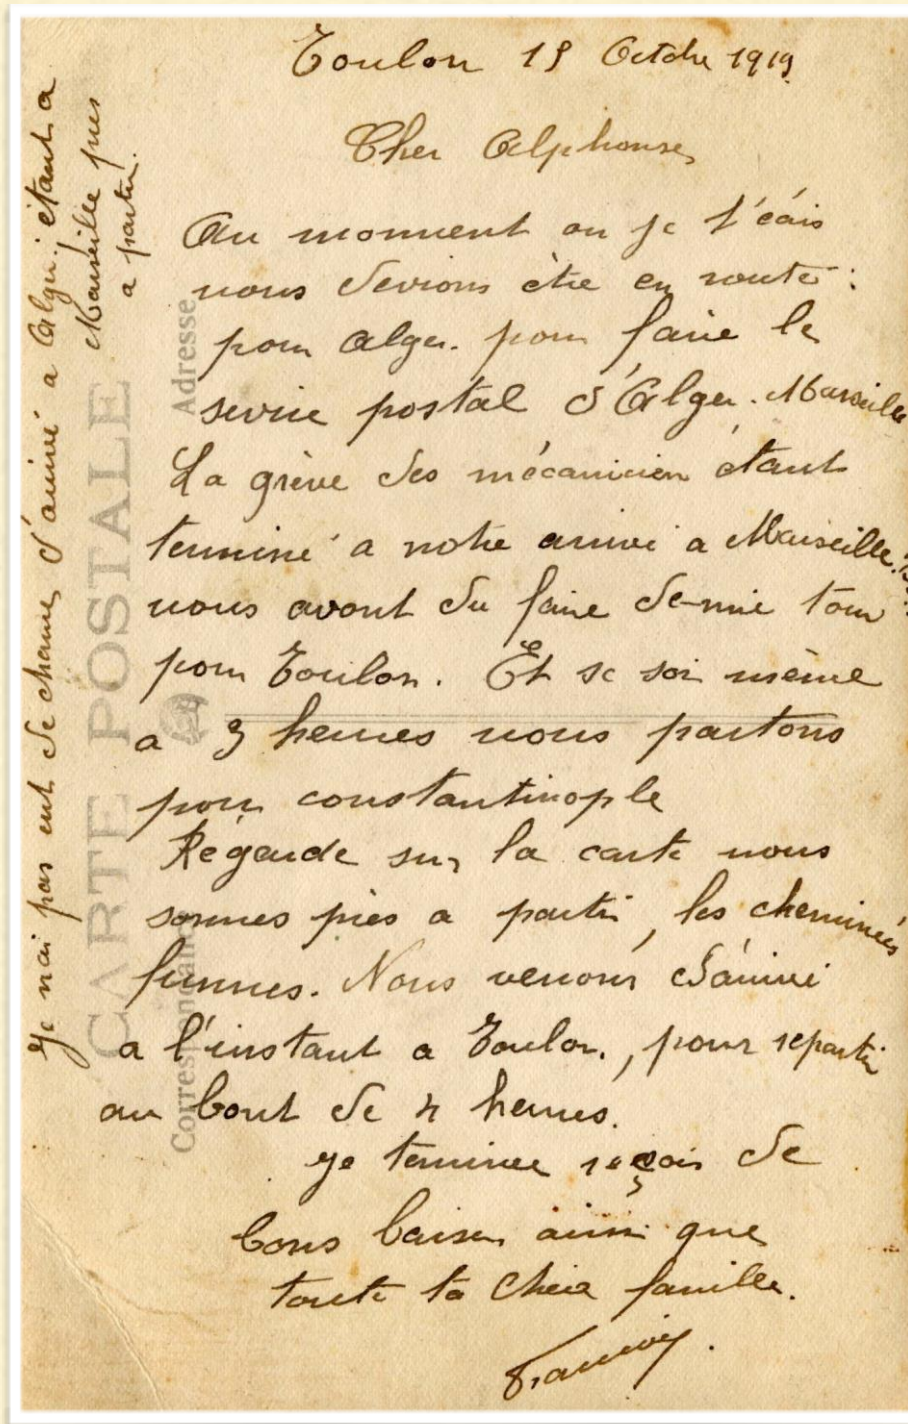 Toulon 15 Octobre 1919.
Cher Alphonse,
Au moment ou je t'écris
nous devions être en route
pour Alger. pour faire le
service postal d'Alger. Marseille
La grève des mécanicien étant
terminé a notre arrivé a Marseille.
nous avont du faire demie tour
pour Toulon. Et se soir même
a 3 heures nous partons
pour constantinople
Régarde sur la carte nous
sommes près a partir, les cheminées
fumes. Nous venons d'arrivé
a l'instant a Toulon, pour repartir
au bout de 4 heures.
Je termine reçois de
bons baiser ainsi que
toute ta chère famille.
Je nai pas eut de chance d'arrivé a Alger. étant a
Marseille près
a partir.
CARTE POSTALE
Correspondance
Adresse